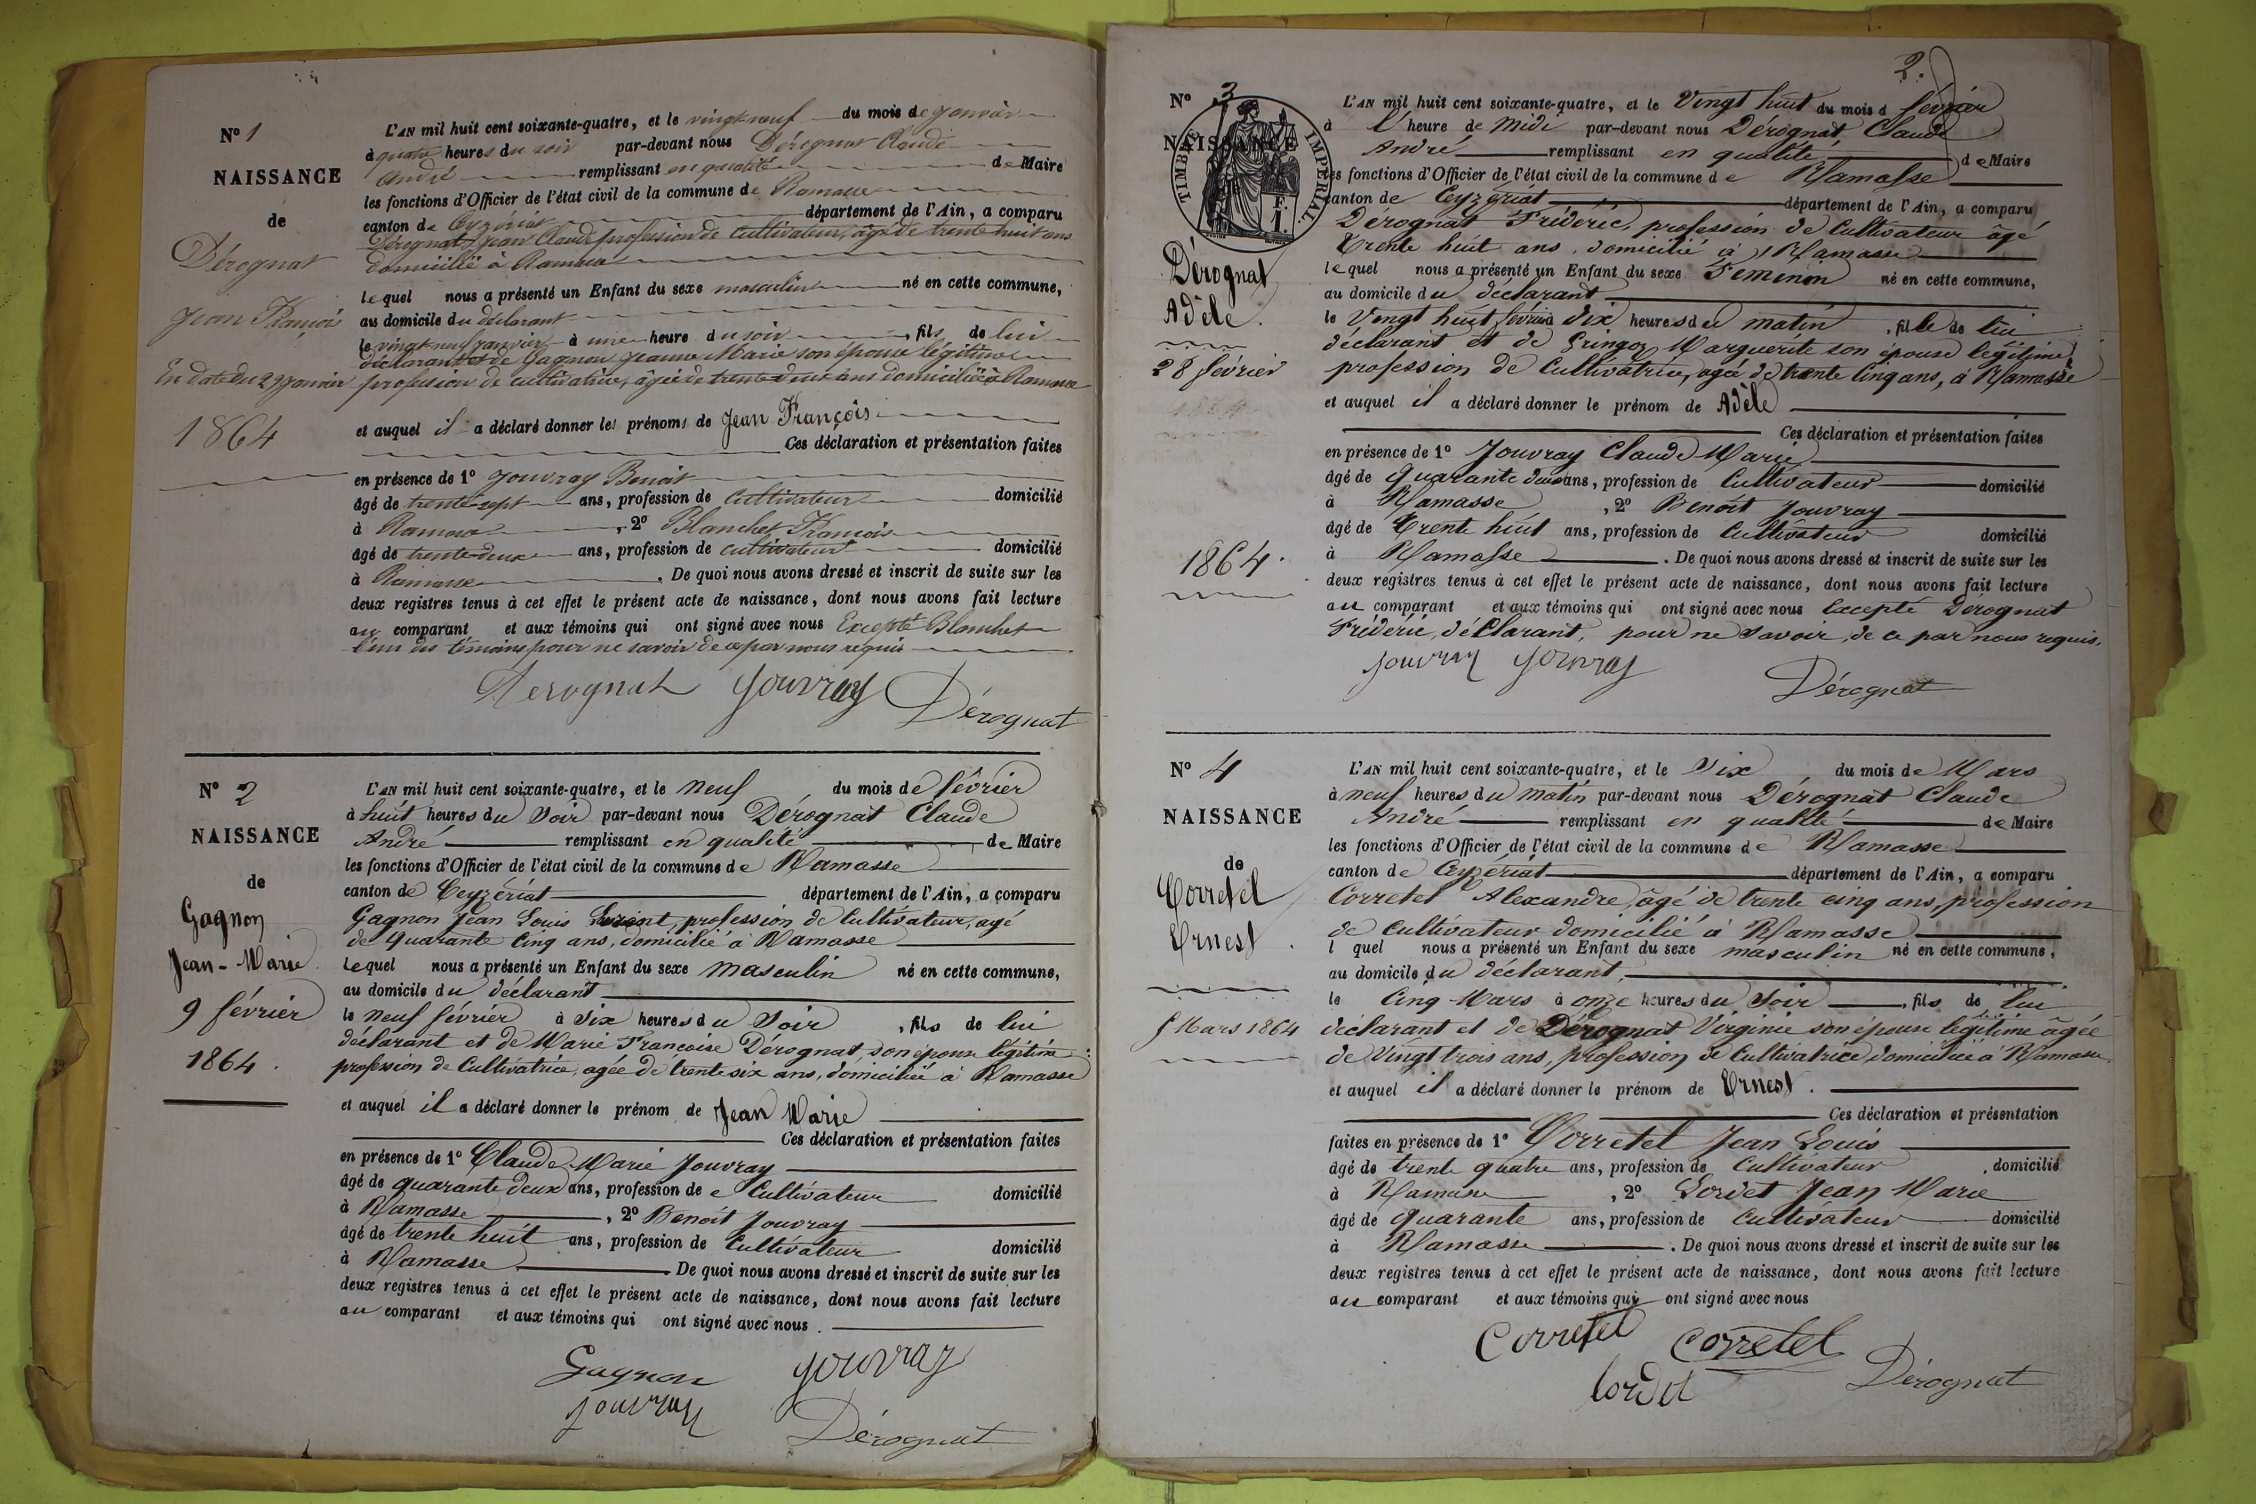 N° 1
NAISSANCE
de
Dérognat
Jean François
En date du 29 Janvier
1864
L'AN mil huit cent soixante-quatre, et le vingt neuf du mois de Janvier
à quatre heures du soir par-devant nous Dérognat Claude
André remplissant en qualité de Maire
les fonctions d'Officier de l'état civil de la commune de Ramasse
canton de Ceyzériat département de l'Ain, a comparu
Dérognat, Jean Claude profession de cultivateur, âgé de trente huit ans
domicilié à Ramasse
lequel nous a présenté un Enfant du sexe masculin né en cette commune,
au domicile du déclarant
le vingt neuf janvier à une heure du soir, fils de lui
déclarant et de Gagnon Jeanne Marie son épouse légitime
profession de cultivatrice, âgée de trente deux ans domiciliée à Ramasse
et auquel il a déclaré donner les prénoms de Jean François
Ces déclaration et présentation faites
en présence de 1° Jouvray Benoît
âgé de trente-sept ans, profession de cultivateur domicilié
à Ramasse, 2° Blanchet François
âgé de trente-deux ans, profession de cultivateur domicilié
à Ramasse. De quoi nous avons dressé et inscrit de suite sur les
deux registres tenus à cet effet le présent acte de naissance, dont nous avons fait lecture
au comparant et aux témoins qui ont signé avec nous Excepté Blanchet
l'un des témoins pour ne savoir de ce par nous requis
Derognat Jouvray Dérognat
N° 2
NAISSANCE
de
Gagnon
Jean-Marie
9 février
1864
L'AN mil huit cent soixante-quatre, et le neuf du mois de février
à huit heures du soir par-devant nous Dérognat Claude
André remplissant en qualité de Maire
les fonctions d'Officier de l'état civil de la commune de Ramasse
canton de Ceyzériat département de l'Ain, a comparu
Gagnon Jean Louis, profession de Cultivateur, agé
de quarante cinq ans, domicilié à Ramasse
lequel nous a présenté un Enfant du sexe masculin né en cette commune,
au domicile du déclarant
le neuf février à six heures du soir, fils de lui
déclarant et de Marie Francoise Dérognat, son épouse légitime
profession de Cultivatrice, agée de trente six ans, domiciliée à Ramasse
et auquel il a déclaré donner le prénom de Jean Marie
Ces déclaration et présentation faites
en présence de 1° Claude Marie Jouvray
âgé de quarante deux ans, profession de Cultivateur domicilié
à Ramasse, 2° Benoît Jouvray
âgé de trente huit ans, profession de Cultivateur domicilié
à Ramasse. De quoi nous avons dressé et inscrit de suite sur les
deux registres tenus à cet effet le présent acte de naissance, dont nous avons fait lecture
au comparant et aux témoins qui ont signé avec nous.
Gagnon Jouvray
Jouvray Dérognat
2.
N° 3
NAISSANCE
TIMBRE IMPÉRIAL.
Dérognat
Adèle.
28 février
1864.
L'AN mil huit cent soixante-quatre, et le Vingt huit du mois d février
à l'heure de Midi par-devant nous Dérognat Claude
André remplissant en qualité de Maire
les fonctions d'Officier de l'état civil de la commune de Ramasse
canton de Ceyzériat département de l'Ain, a comparu
Dérognat Fréderic, profession de Cultivateur âgé
trente huit ans, domicilié à Ramasse
lequel nous a présenté un Enfant du sexe Feminin né en cette commune,
au domicile du déclarant
le Vingt huit février dix heures du matin, fille de lui
déclarant et de Gringoz Marguerite son épouse légitime
profession de Cultivatrice, agée de trente Cinq ans, à Ramasse
et auquel il a déclaré donner le prénom de Adèle
Ces déclaration et présentation faites
en présence de 1° Jouvray Claude Marie
âgé de quarante deux ans, profession de Cultivateur domicilié
à Ramasse, 2° Benoît Jouvray
âgé de trente huit ans, profession de Cultivateur domicilié
à Ramasse. De quoi nous avons dressé et inscrit de suite sur les
deux registres tenus à cet effet le présent acte de naissance, dont nous avons fait lecture
au comparant et aux témoins qui ont signé avec nous excepté Dérognat
Fréderic, déclarant, pour ne savoir, de ce par nous requis.
Jouvray Jouvray
Dérognat
N° 4
NAISSANCE
de
Corretel
Ernest.
5 Mars 1864
L'AN mil huit cent soixante-quatre, et le Six du mois de Mars
à neuf heures du matin par-devant nous Dérognat Claude
André remplissant en qualité de Maire
les fonctions d'Officier de l'état civil de la commune de Ramasse
canton de Ceyzériat département de l'Ain, a comparu
Corretel Alexandre, âgé de trente cinq ans, profession
de Cultivateur domicilié à Ramasse
l quel nous a présenté un Enfant du sexe masculin né en cette commune,
au domicile du déclarant,
le Cinq Mars à onze heures du soir, fils de lui
déclarant et de Dérognat Virginie son épouse légitime âgée
de Vingt trois ans, profession de Cultivatrice domiciliée à Ramasse
et auquel il a déclaré donner le prénom de Ernest.
Ces déclaration et présentation
faites en présence de 1° Corretel Jean Louis
âgé de trente quatre ans, profession de Cultivateur, domicilié
à Ramasse, 2° Cordet Jean Marie
âgé de quarante ans, profession de Cultivateur domicilié
à Ramasse. De quoi nous avons dressé et inscrit de suite sur les
deux registres tenus à cet effet le présent acte de naissance, dont nous avons fait lecture
au comparant et aux témoins qui ont signé avec nous
Corretel Corretel
Cordet Dérognat